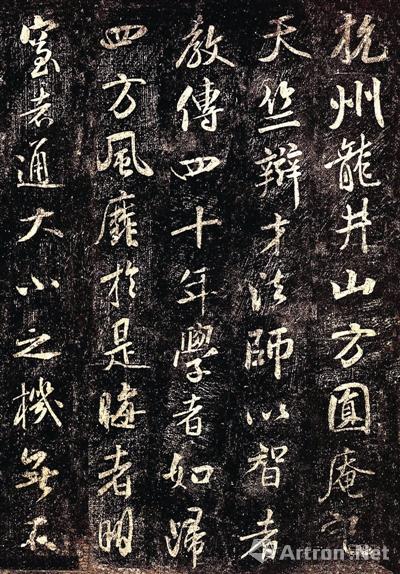 杭州龍井山方圓庵記
天竺辯才法師以智者
教傳四十年學者如歸
四方風靡於是晦者明
窒者通大小之機無不
Artron.Net